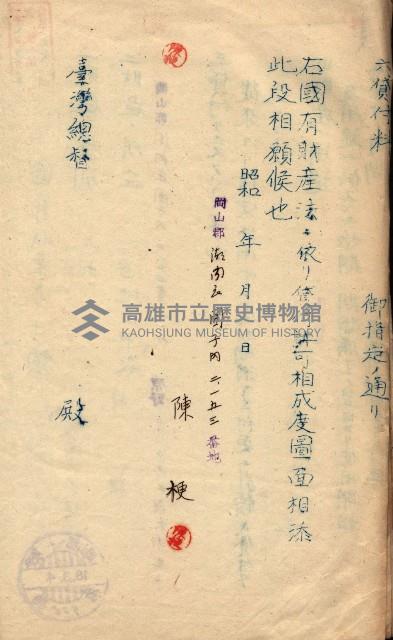 六貸付料
御指定ノ通リ
右國有財產法ニ依リ御許可相成度圖面相添
此段相願候也
昭和 年 月 日
岡山郡湖內庄圍子內二一五三番地
陳 梗
臺灣總督 殿
高雄市立歷史博物館
KAOHSIUNG MUSEUM OF HISTORY